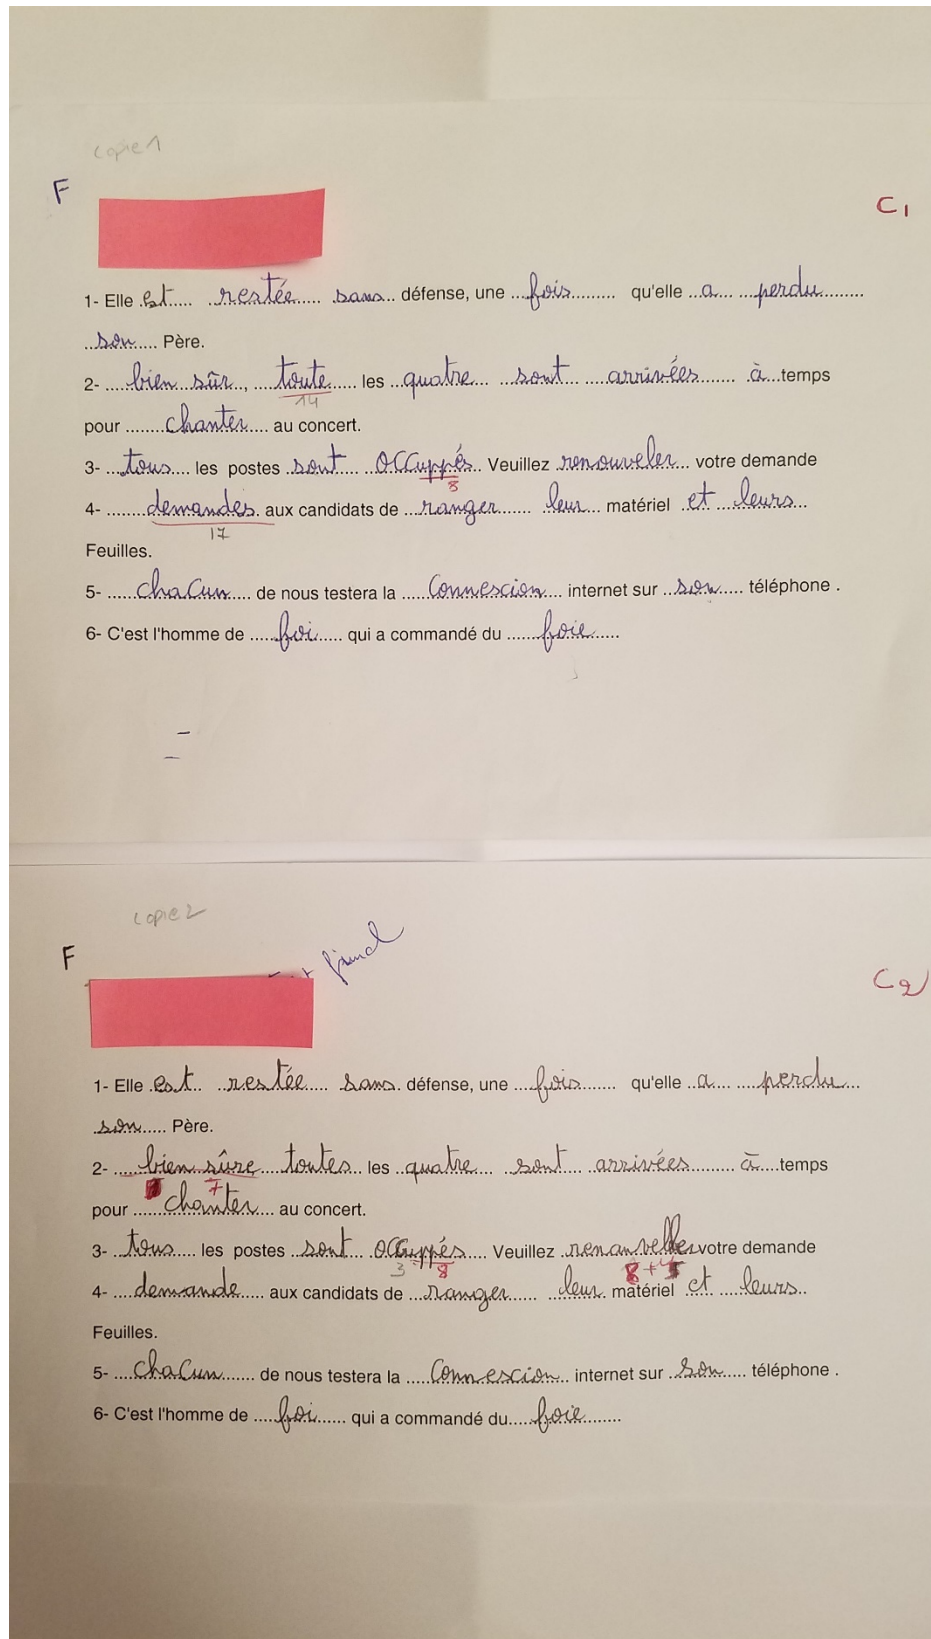 copie 1
F
C1
1- Elle est restée sans défense, une fois qu'elle a perdu
son Père.
2- bien sûr, toute les quatre sont arrivées à temps
14
pour chanter au concert.
3- tous les postes sont occuppés Veuillez renouveler votre demande
8
4- demandes aux candidats de ranger leur matériel et leurs
17
Feuilles.
5- chacun de nous testera la connescion internet sur son téléphone .
6- C'est l'homme de foi qui a commandé du foie
copie 2
F
final
C2
1- Elle est restée sans défense, une fois qu'elle a perdu
son Père.
2- bien sûre toutes les quatre sont arrivées à temps
7
pour chanter au concert.
3- tous les postes sont occuppés Veuillez renanveller votre demande
3 8 8+
4- demande aux candidats de ranger leur matériel et leurs
Feuilles.
5- chacun de nous testera la connescion internet sur son téléphone .
6- C'est l'homme de foi qui a commandé du foie